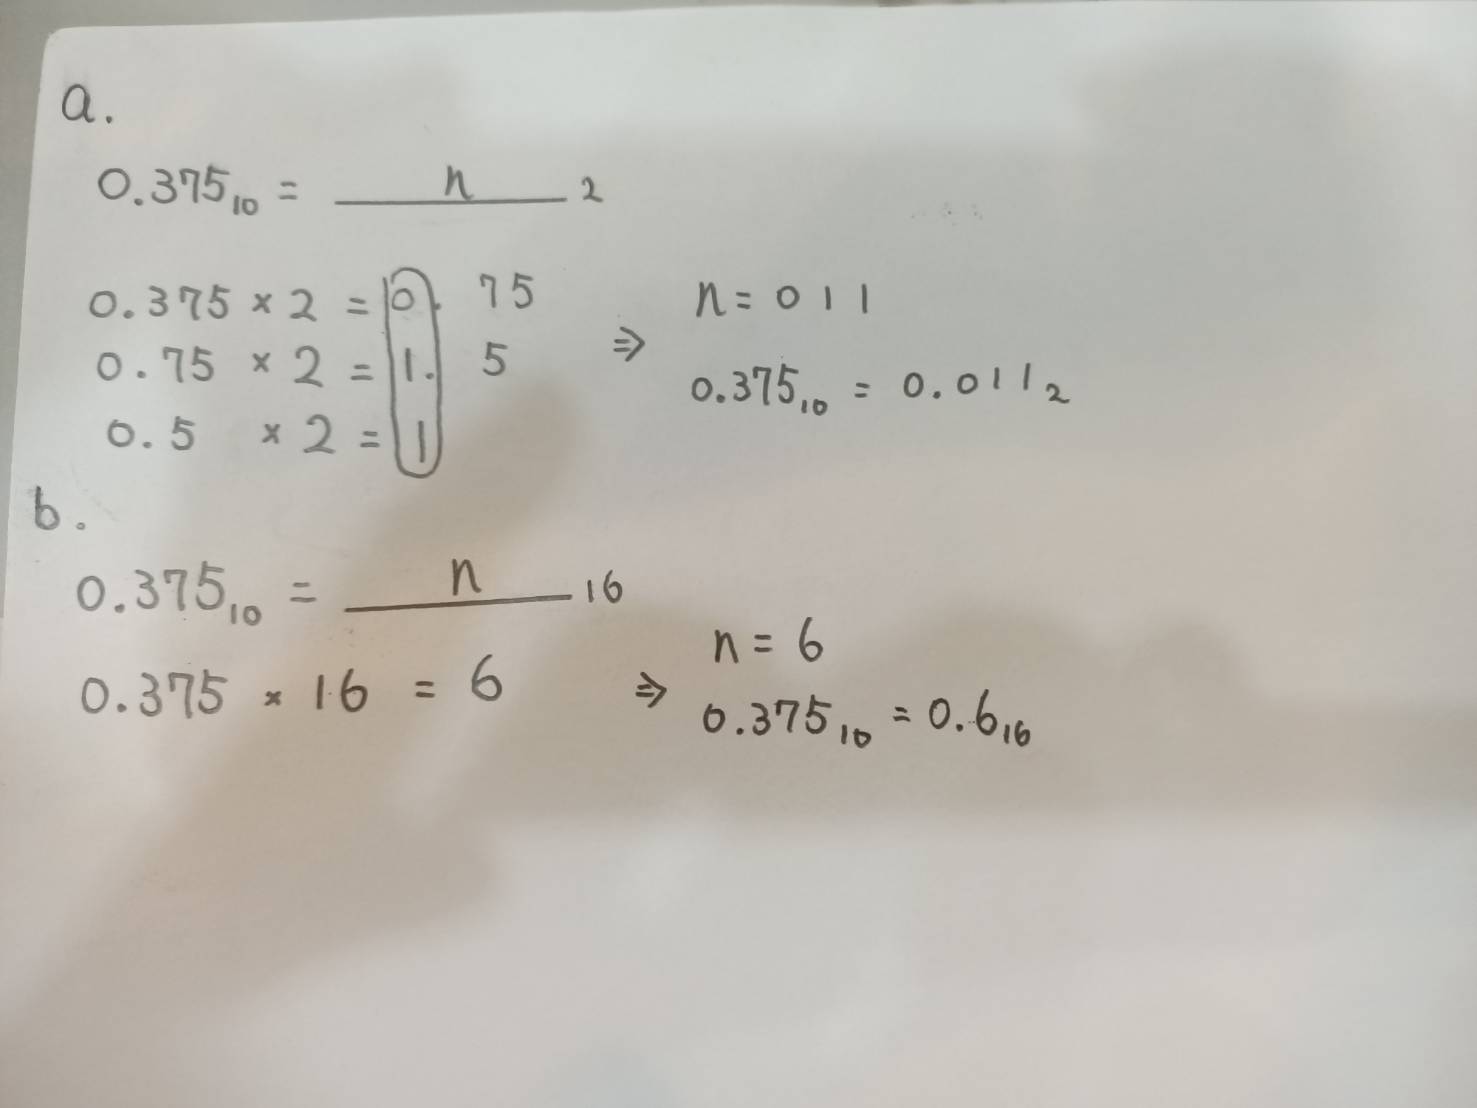 a.
0.375₁₀ = n ₂
0.375 × 2 = 0. 75
0.75 × 2 = 1. 5
0.5 × 2 = 1
⇒
n = 0 1 1
0.375₁₀ = 0.011₂
b.
0.375₁₀ = n ₁₆
0.375 × 16 = 6
⇒
n = 6
0.375₁₀ = 0.6₁₆